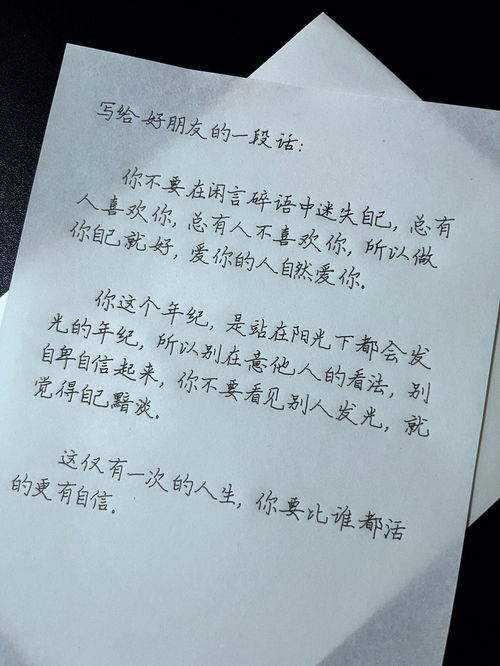 写给好朋友的一段话：
你不要在闲言碎语中迷失自己，总有
人喜欢你，总有人不喜欢你，所以做
你自己就好，爱你的人自然爱你。
你这个年纪，是站在阳光下都会发
光的年纪，所以别在意他人的看法，别
自卑自信起来，你不要看见别人发光，就
觉得自己黯淡。
这仅有一次的人生，你要比谁都活
的更有自信。